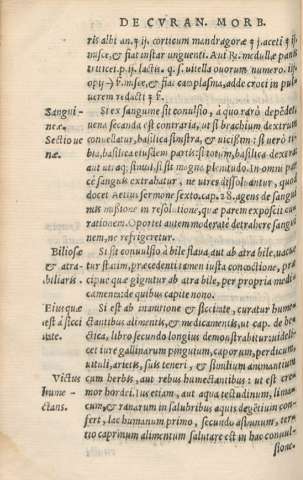 DE CVRAN. MORB.
ris albi an. ʒ ij. corticum mandragoræ ʒ j. aceti ℥ iij.
misce, & fiat instar unguenti. Aut ℞. medullæ panis
triticei p. ij. lactis. q. s. uitella ouorum numero. iij.
opij ℈ j. misce, & fiat cataplasma, adde croci in pul
uerem redacti
Sangui- Si ex sanguine sit conuulsio, à quo rarò depēdet:
neæ. uena secanda est contraria, ut si brachium dextrum
Sectio ue conuellatur, basilica sinistra, & uicissim: si uerò ti-
næ. bia, basilica eiusdem partis: si totum, basilica dextra
aut utraq; simul, si sit magna plenitudo. In omni par
cè sanguis extrahatur, ne uires dissoluantur, quod
docet Aetius sermone sexto. cap. 28. agens de sangui
nis missione in resolutione, quæ parem exposcit cu-
rationem. Oportet autem moderatè detrahere sangui
nem, ne refrigeretur.
Biliosæ Si sit conuulsio à bile flaua, aut ab atra bile, uacue
& atra- tur statim, præcedenti tamen iusta concoctione, præ
bilaris. cipuè quæ gignitur ab atra bile, per propria medi-
camenta: de quibus capite nono.
Eius quæ Si est ab inanitione & siccitate, curatur hume-
est à sicci ctantibus alimentis, & medicamentis, ut cap. de he-
tate. ctica, libro secundo longius demonstrabitur: uidelicet
iure gallinarum pinguium, caporum, perdicum
uituli, artetis, suis teneri, & similium animantium
Victus cum herbis, aut rebus humectantibus: ut est cre-
hume- mor hordei. Ius etiam, aut aqua testudinum, lima-
ctans. cum, & ranarum in salubribus aquis degentium con-
fert, lac humanum primo, secundo asininum, ter-
tio caprinum alimentum salutare est in hac conuul-
sione.